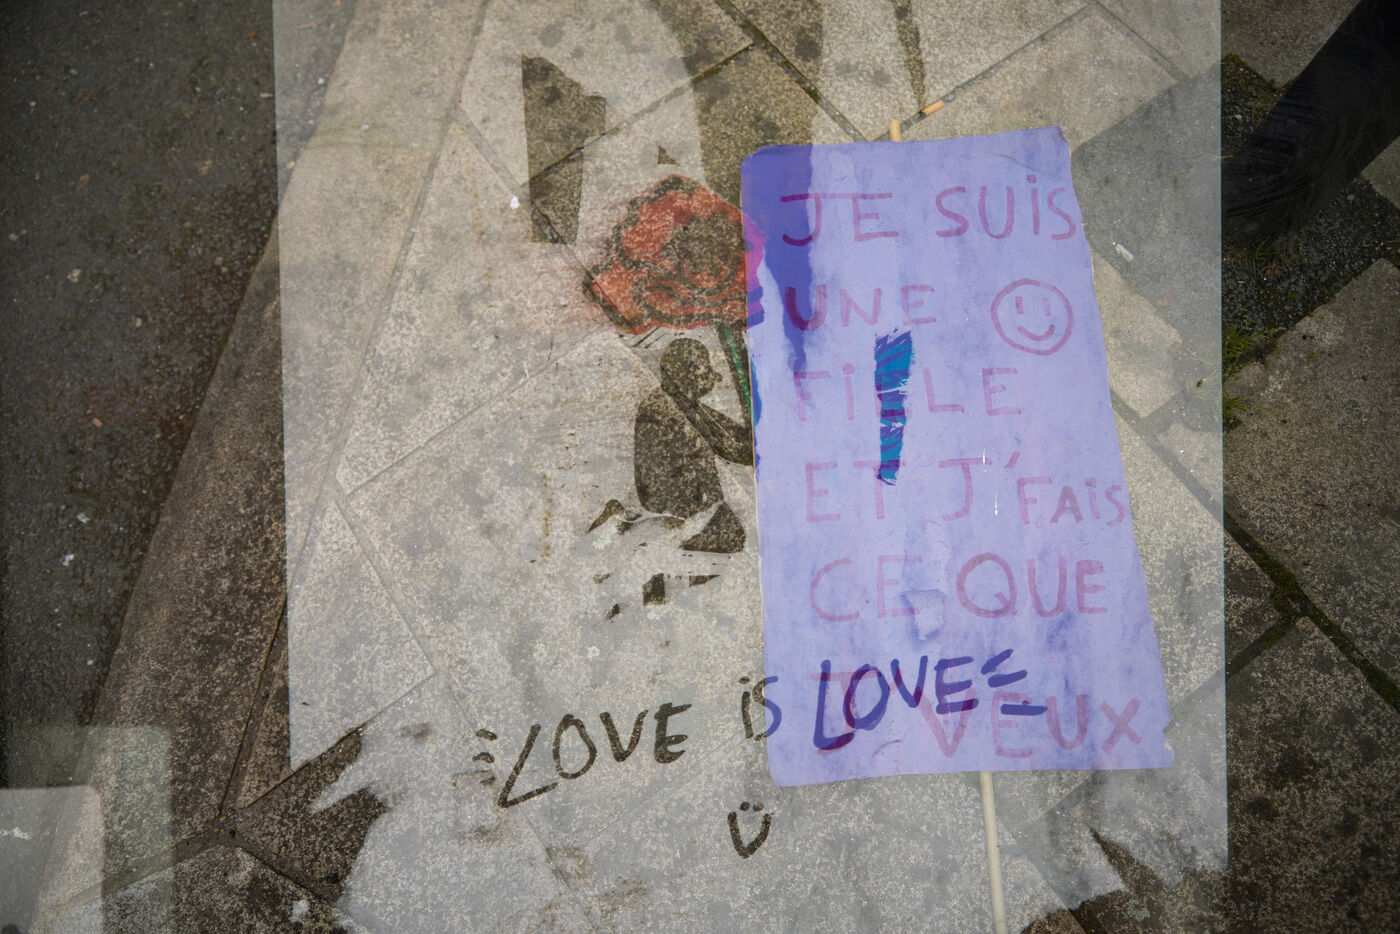 JE SUiS
UNE
FiLLE
ET J'FAiS
CE QUE
J VEUX
LOVE iS LOVE